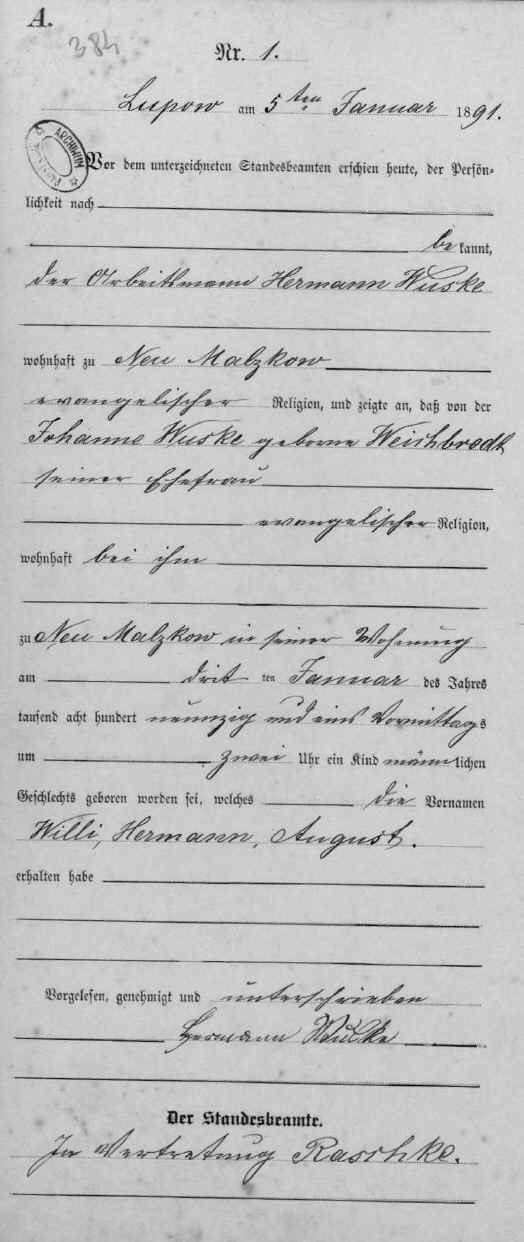 A.
384
Nr. 1.
Lupow am 5ten Januar 1891.
ARCHIWUM
Vor dem unterzeichneten Standesbeamten erschien heute, der Persön-
lichkeit nach
bekannt,
der Arbeitsmann Hermann Wuske
wohnhaft zu Neu Malzkow
evangelischer Religion, und zeigte an, daß von der
Johanne Wuske geborne Weichbrodt
seiner Ehefrau
evangelischer Religion,
wohnhaft bei ihm
zu Neu Malzkow in seiner Wohnung
am dritten Januar des Jahres
tausend acht hundert neunzig und eins Vormittags
um zwei Uhr ein Kind männlichen
Geschlechts geboren worden sei, welches die Vornamen
Willi, Hermann, August.
erhalten habe
Vorgelesen, genehmigt und unterschrieben
Hermann Wuske
Der Standesbeamte.
In Vertretung Raschke.